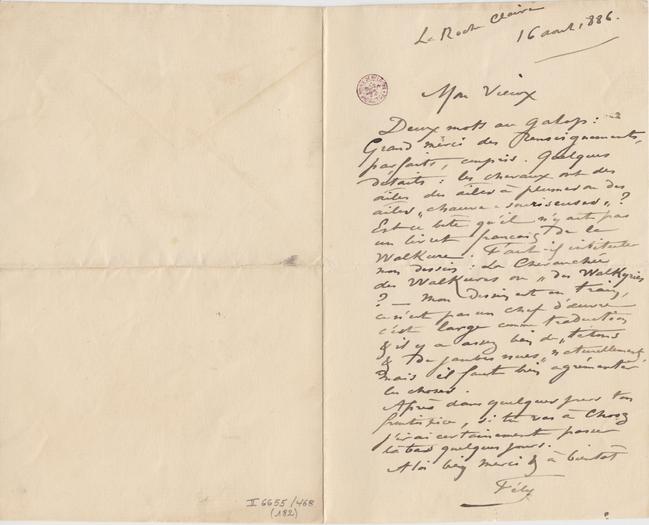 La Roche Claire
16 aout, 1886.
Mon Vieux
Deux mots au galop :
Grand merci des Renseignements,
parfaits, compris. Quelques
détails : les chevaux ont des
ailes des ailes à plumes ou des
ailes „chauve-sourisesées" ?
Est ce bête qu'il n'y ait pas
un livret français de la
Walkure. Faut-il intituler
mon dessin : La Chevauchée
des Walkures ou „des Walkyries
? — Mon dessin est en train,
ce n'est pas un chef d'œuvre
c'est large comme traduction
& il y a assez bien de „tétons
& de jambes nues" naturellement
mais il faut bien agrémenter
les choses.
Après dans quelques jours ton
, si tu vas à Chooz
j'irai certainement passer
là bas quelques jours.
A toi bien merci & à bientôt
Fély
II 6655/468
(182)